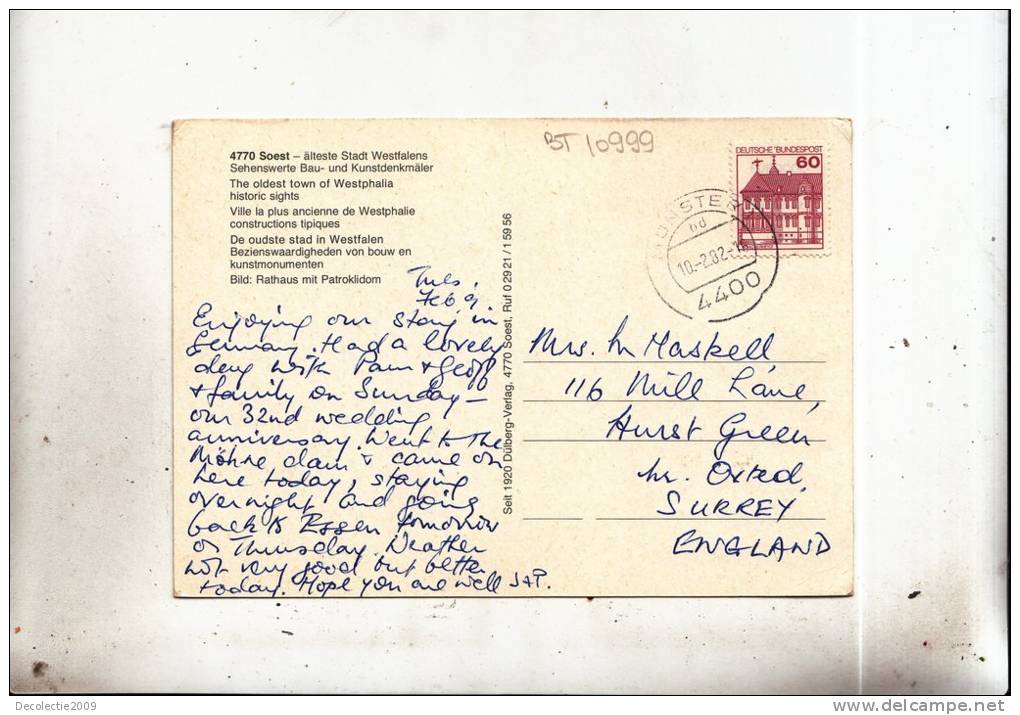 BT 10999
4770 Soest – älteste Stadt Westfalens
Sehenswerte Bau- und Kunstdenkmäler
The oldest town of Westphalia
historic sights
Ville la plus ancienne de Westphalie
constructions tipiques
De oudste stad in Westfalen
Bezienswaardigheden von bouw en
kunstmonumenten
Bild: Rathaus mit Patroklidom
Tues,
Feb 9
Enjoying our stay in
Germany. Had a lovely
day with Pam & Geoff
& family on Sunday –
our 32nd wedding
anniversary. Went to the
Möhne dam & came on
here today, staying
overnight and going
back to Essen tomorrow
or Thursday. Weather
not very good but better
today. Hope you are well J & P.
Seit 1920 Dülberg-Verlag, 4770 Soest, Ruf 0 29 21 / 1 59 56
DEUTSCHE BUNDESPOST
60
MÜNSTER
bd
10.-2.82-1
4400
Mrs. M Maskell,
116 Mill Lane,
Hurst Green
nr. Oxted,
SURREY
ENGLAND
Decolectie2009
www.delcampe.net